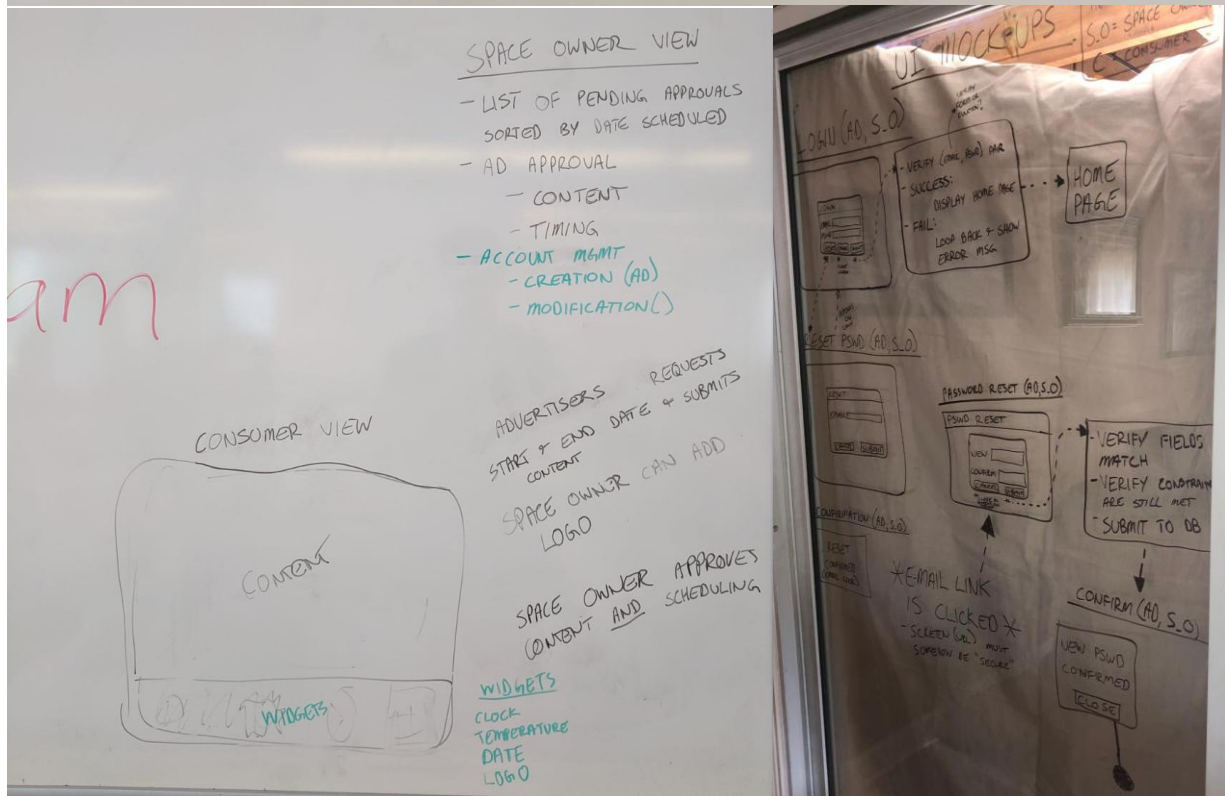 am
SPACE OWNER VIEW
- LIST OF PENDING APPROVALS
SORTED BY DATE SCHEDULED
- AD APPROVAL
- CONTENT
- TIMING
- ACCOUNT MGMT
- CREATION (AD)
- MODIFICATION()
ADVERTISERS REQUESTS
START & END DATE & SUBMITS
CONTENT
SPACE OWNER CAN ADD
LOGO
SPACE OWNER APPROVES
CONTENT AND SCHEDULING
CONSUMER VIEW
CONTENT
WIDGETS
WIDGETS
CLOCK
TEMPERATURE
DATE
LOGO
UI MOCK-UPS
S.O = SPACE
C = CONSUMER
LOGIN (AD, S_O)
- VERIFY (EMAIL, PSWD) PAIR
- SUCCESS:
DISPLAY HOME PAGE
- FAIL:
LOOP BACK & SHOW
ERROR MSG
HOME
PAGE
RESET PSWD (AD, S_O)
RESET
SUBMIT
CONFIRMATION (AD, S_O)
RESET
CONFIRMED
PASSWORD RESET (AD, S_O)
PSWD RESET
NEW
CONFIRM
CANCEL
- VERIFY FIELDS
MATCH
- VERIFY CONSTRAIN
ARE STILL MET
- SUBMIT TO DB
*E-MAIL LINK
IS CLICKED*
- SCREEN (URL) MUST
SOMEHOW BE "SECURE"
CONFIRM (AD, S_O)
NEW PSWD
CONFIRMED
CLOSE